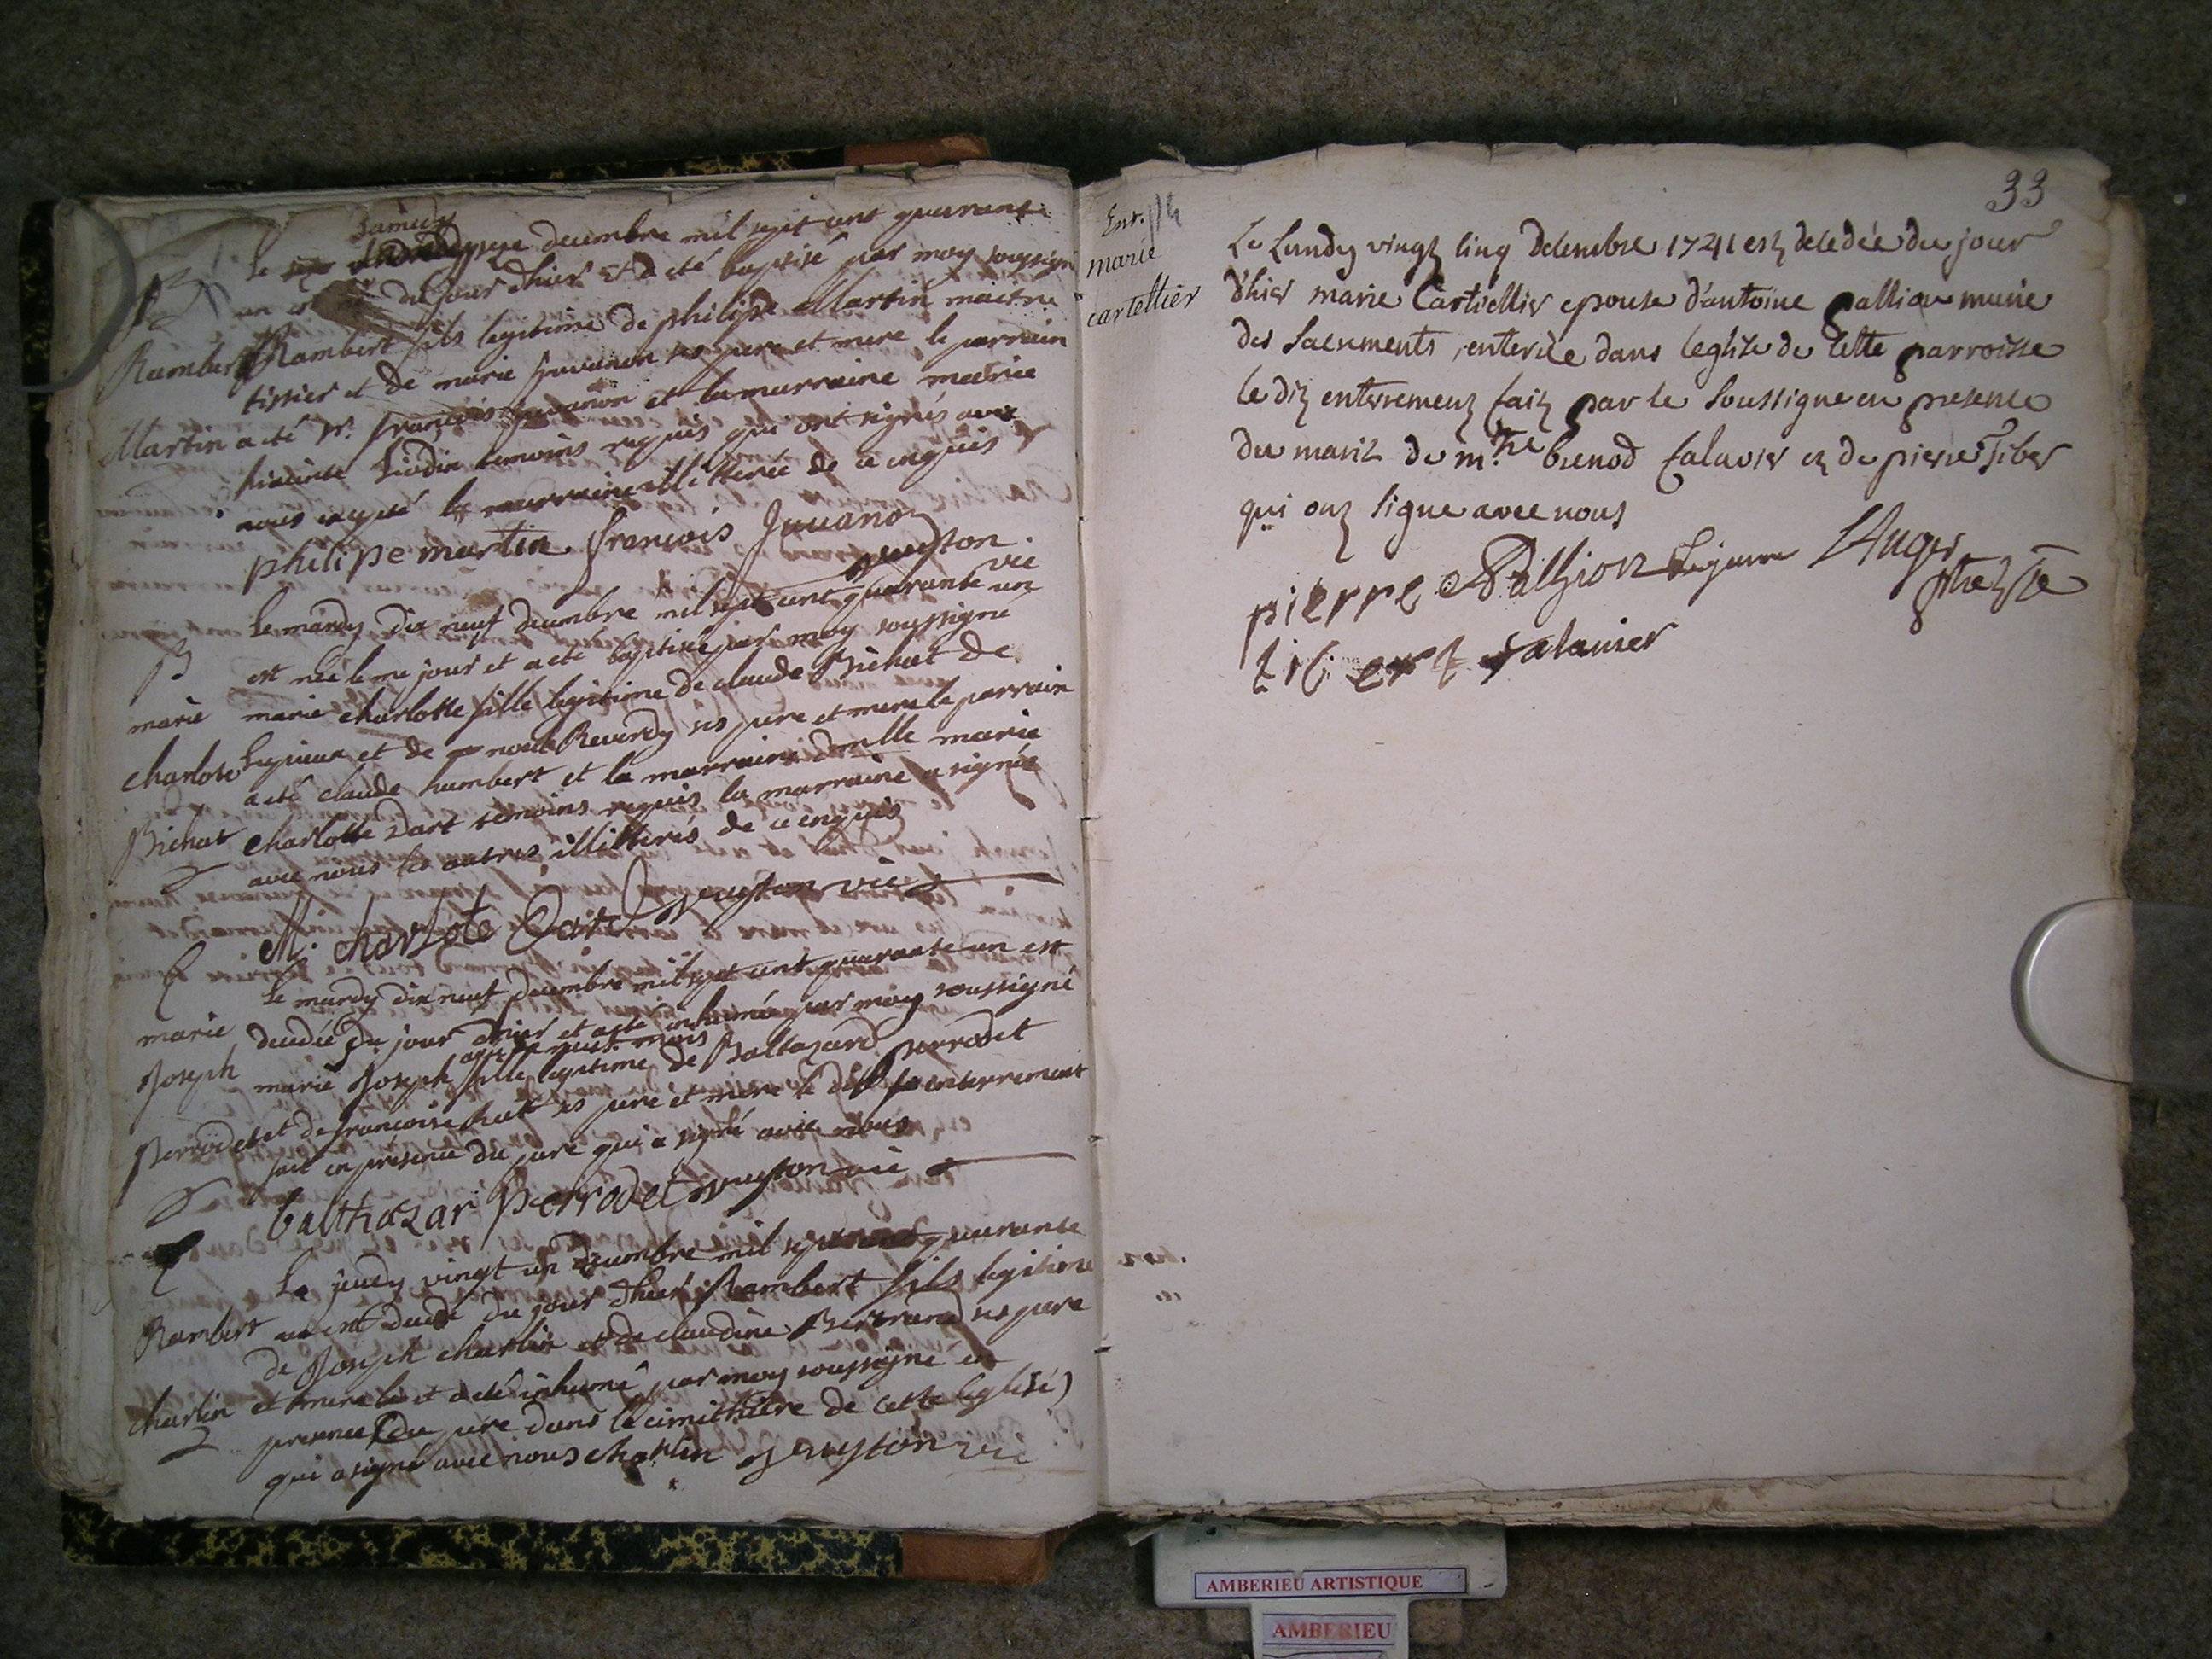 samedy
Le seize decembre mil sept cent quarante
un est né du jour d'hier et a eté baptisé par moy soussign
B
Rambert
Martin
Rambert fils legitime de philipe Martin maitre
tissier et de marie Juvanon ses pere et mere le parrain
a eté Sr. françois Juvanon et la marraine
hiacinte temoins requis qui ont signés avec
nous excepté la marraine illitterée de ce enquis
philipe martin françois Juuanon
vic
B
marie
charlote
Bichat
Le mardy dix neuf decembre mil sept cent quarante un
est née le me jour et a eté baptisée par moy soussigné
marie charlotte fille legitime de claude Bichat de
et de Reverdy ses pere et mere le parrain
a eté claude humbert et la marraine dmlle marie
charlotte Dart temoins requis la marraine a signée
avec nous les autres illitterés de ce enquis
M. charlote Dart vic
E
marie
Joseph
Perrodet
Le mardy dix neuf decembre mil sept cent quarante un est
decedée du jour d'hier et a eté inhumée par moy soussigné
agée de huit mois
marie Joseph fille legitime de Baltazard Perrodet
et de françoise ses pere et mere le dit enterrement
fait en presence du pere qui a signé avec nous
balthazar perrodet vic
E
Rambert
charlin
Le jeudy vingt un decembre mil sept cent quarante
un est decedé du jour d'hier Rambert fils legitime
de Joseph charlin et de claudine Bertrand ses pere
et mere et a eté inhumé par moy soussigné en
presence du pere dans le cimithiere de cette eglise
qui a signé avec nous charlin vic
33
Ent.
marie
cartellier
Le Lundy vingt cinq decembre 1741 est decedée du jour
d'hier marie Cartellier epouse d'antoine pallion munie
des sacrements, enterrée dans l'eglise de cette parroisse
le dit enterrement fait par le soussigné en presence
du marit de m.re benod salavier et de pierre tiber
qui ont signé avec nous
pierre Auger
tibert salanier
AMBERIEU ARTISTIQUE
AMBERIEU